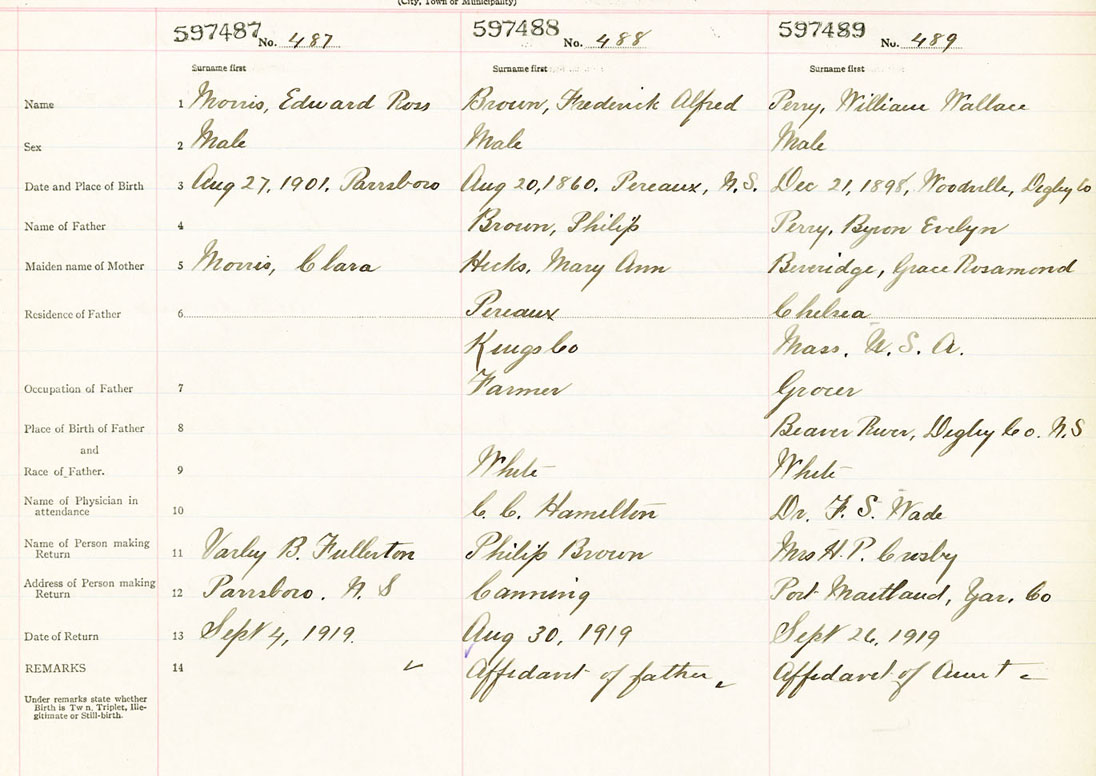 (City, Town or Municipality)
597487 No. 487 597488 No. 488 597489 No. 489
Surname first Surname first Surname first
Name 1 Morris, Edward Ross Brown, Frederick Alfred Perry, William Wallace
Sex 2 Male Male Male
Date and Place of Birth 3 Aug 27, 1901. Parrsboro Aug 20, 1860. Pereaux, N.S. Dec 21, 1898, Woodville, Digby Co
Name of Father 4 Brown, Philip Perry, Byron Evelyn
Maiden name of Mother 5 Morris, Clara Hicks, Mary Ann Beveridge, Grace Rosamond
Residence of Father 6 Pereaux Chelsea
Kings Co Mass. U. S. A.
Occupation of Father 7 Farmer Grocer
Place of Birth of Father 8 Beaver River, Digby Co. N.S
and
Race of Father. 9 White White
Name of Physician in
attendance 10 C. C. Hamilton Dr. F. S. Wade
Name of Person making
Return 11 Varley B. Fullerton Philip Brown Mrs H. P. Crosby
Address of Person making
Return 12 Parrsboro. N. S Canning Port Maitland, Yar. Co
Date of Return 13 Sept 4, 1919. Aug 30, 1919 Sept 26, 1919
REMARKS 14 Affidavit of father Affidavit of Aunt
Under remarks state whether
Birth is Tw n, Triplet, Ille-
gitimate or Still-birth.